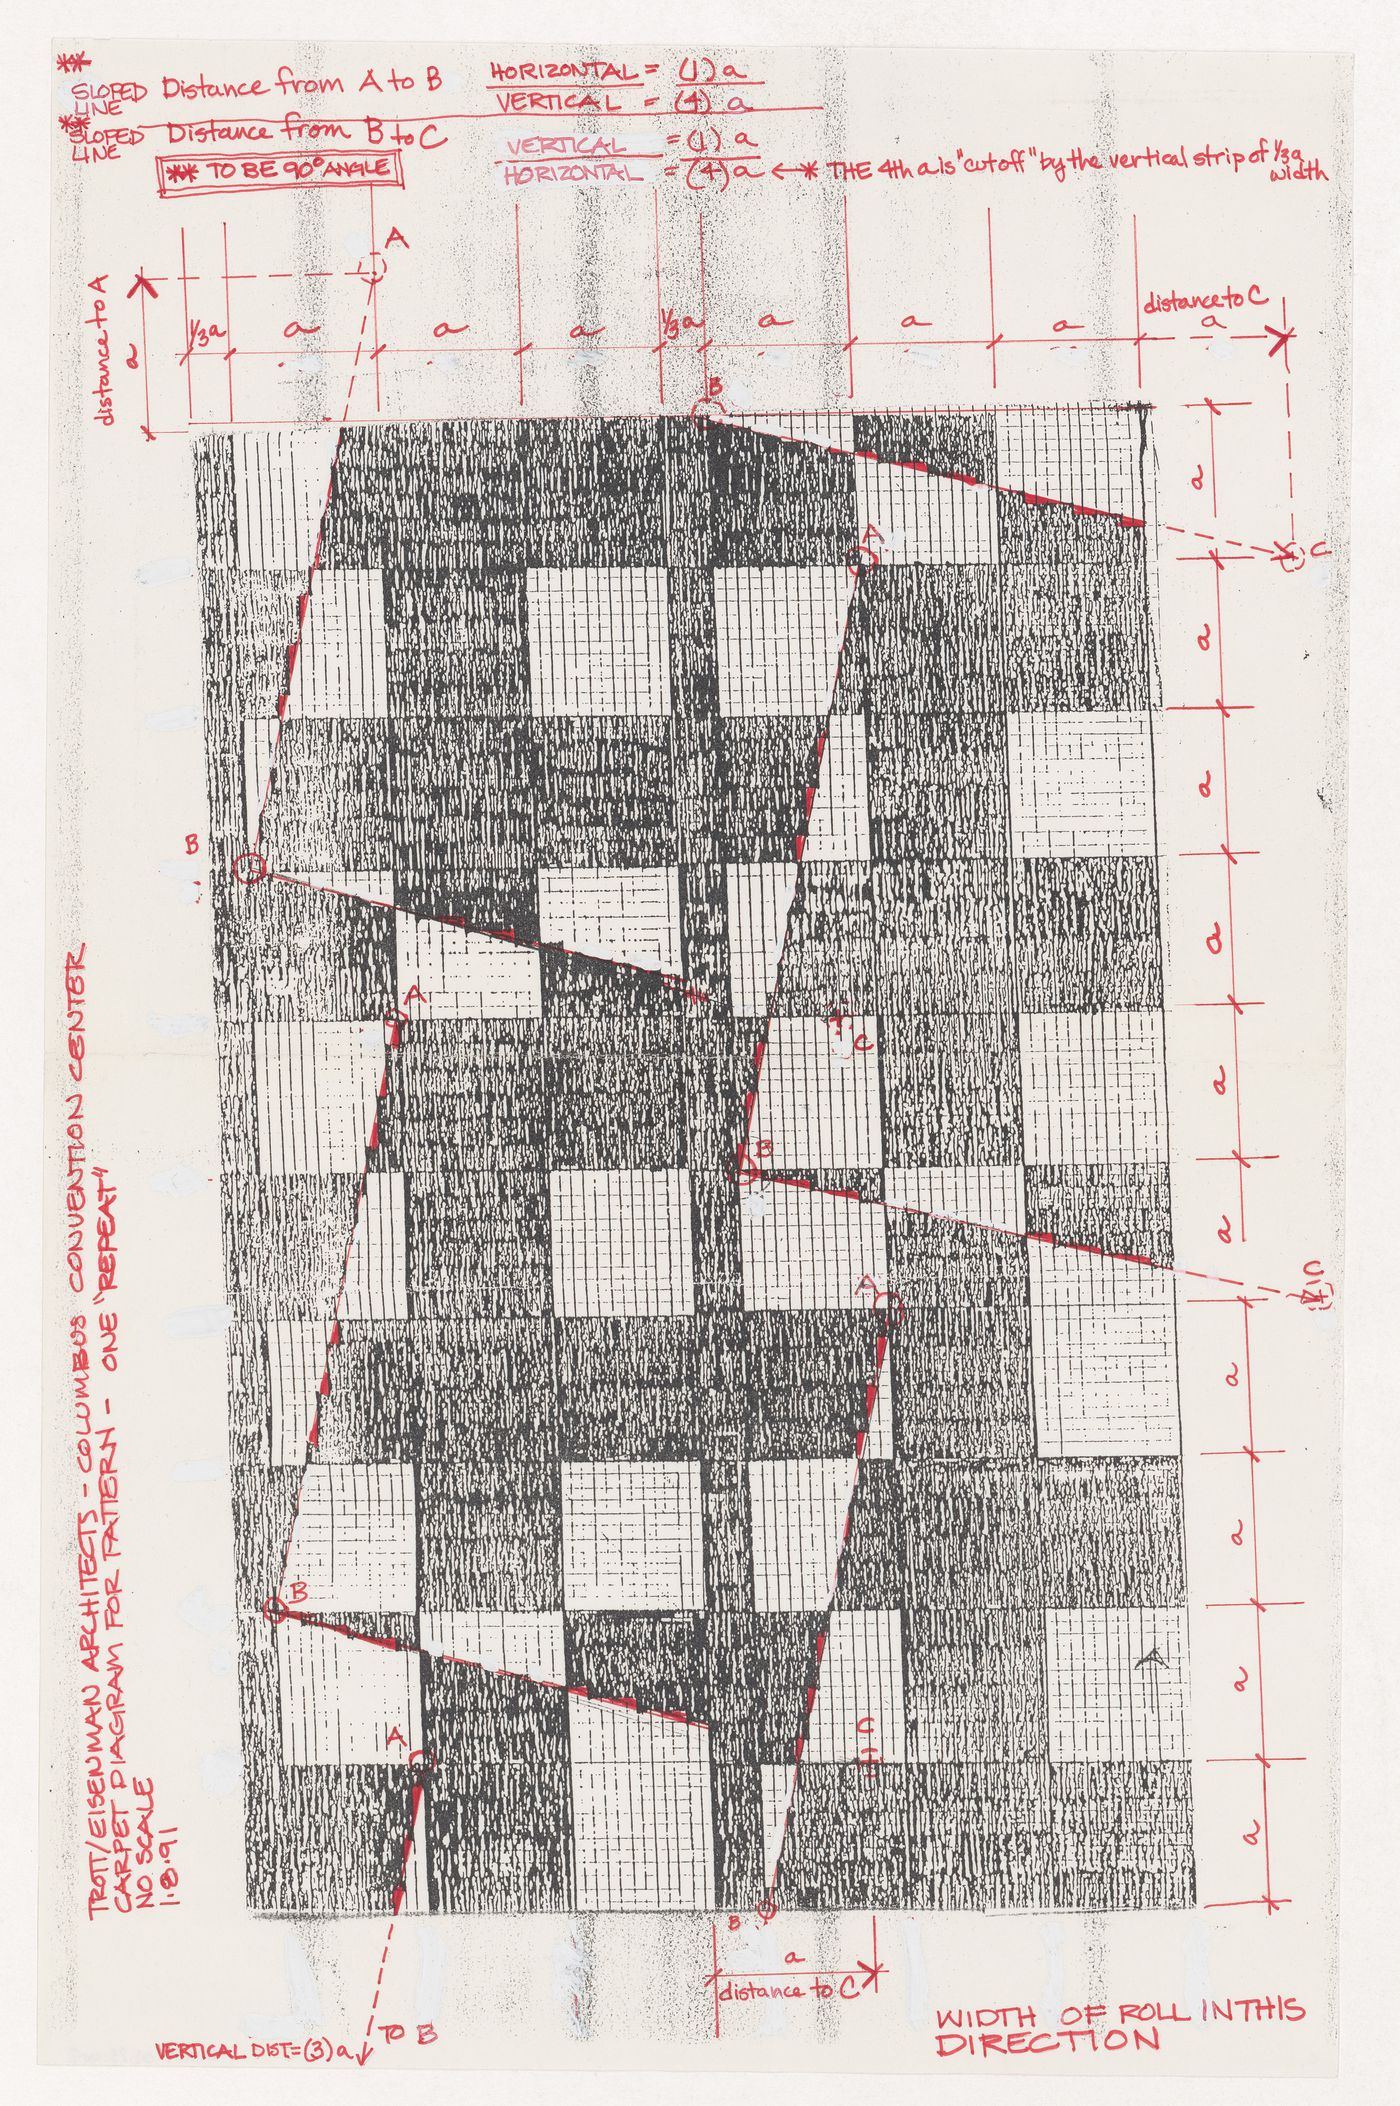 **
SLOPED LINE Distance from A to B HORIZONTAL = (1) a
VERTICAL = (4) a
**
SLOPED LINE Distance from B to C VERTICAL = (1) a
HORIZONTAL = (4) a ←* THE 4th a is "cut off" by the vertical strip of 1/3 a width
** TO BE 90° ANGLE
A
distance to A
a
1/3a a a a 1/3a a a a
distance to C
a
B
a
A
C
a
a
B
a
A
C
a
B
a
A
C
a
a
B
a
A
C
a
B
a
distance to C
TO B
VERTICAL DIST=(3)a
WIDTH OF ROLL IN THIS
DIRECTION
TROTT/EISENMAN ARCHITECTS - COLUMBUS CONVENTION CENTER
CARPET DIAGRAM FOR PATTERN - ONE "REPEAT"
NO SCALE
1·8·91
A